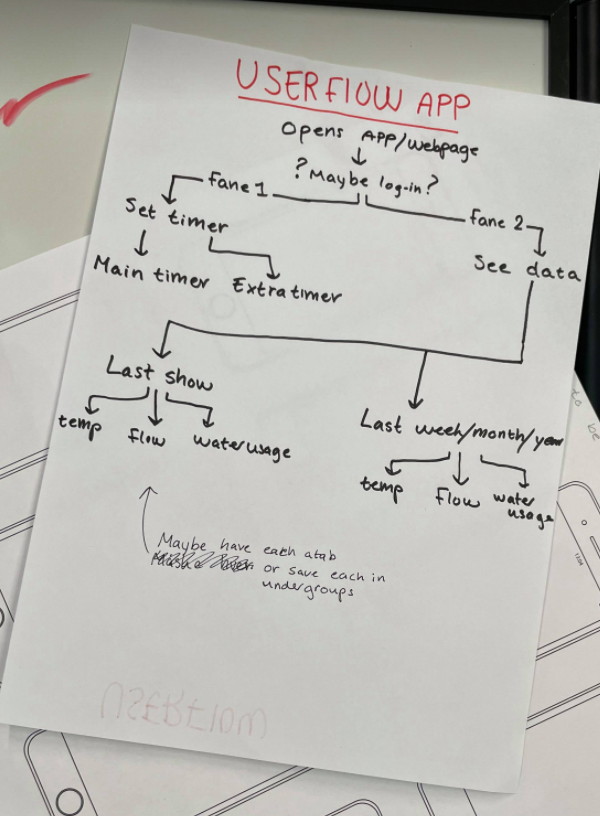 USERFLOW APP
Opens APP/webpage
? Maybe log-in?
Fane 1
Fane 2
Set timer
See data
Main timer
Extra timer
Last show
Last week/month/year
temp
flow
waterusage
temp
flow
water
usage
Maybe have each atab
or save each in
undergroups
to be
USERFLOW